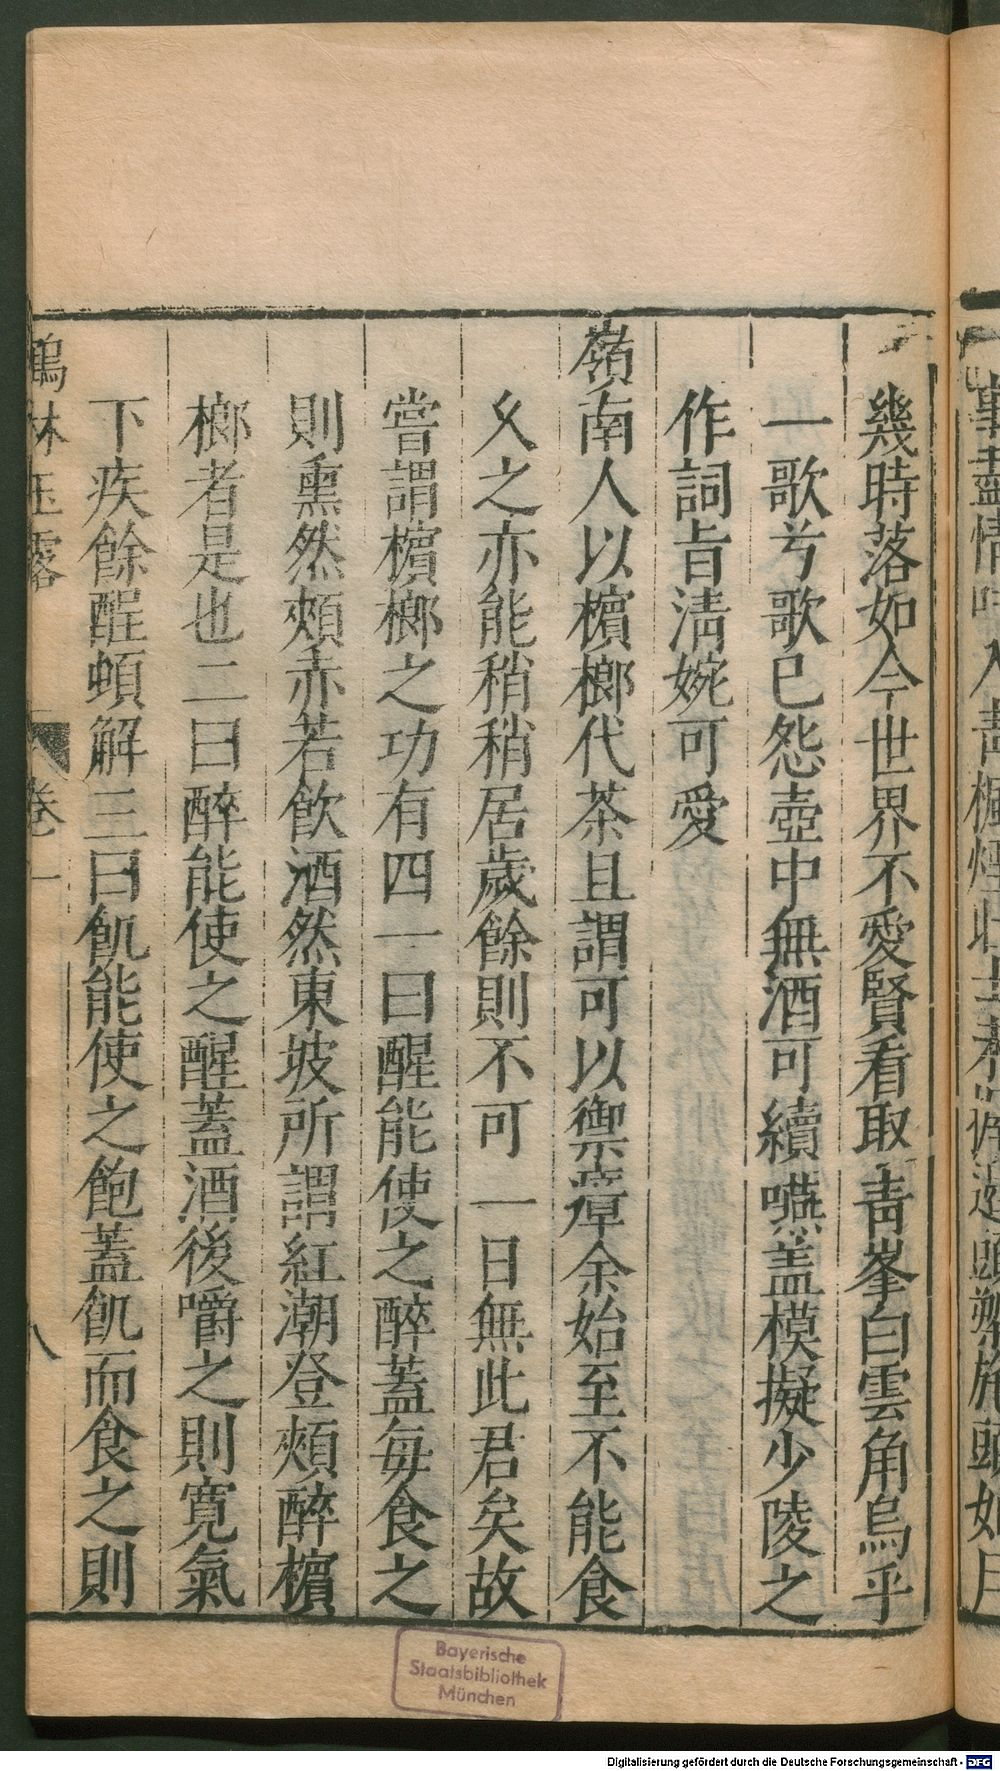 幾時落如今世界不愛賢看取青峯白雲角烏乎
一歌兮歌已怨壺中無酒可續嚥蓋模擬少陵之
作詞旨淸婉可愛
嶺南人以檳榔代茶且謂可以禦瘴余始至不能食
久之亦能稍稍居歲餘則不可一日無此君矣故
嘗謂檳榔之功有四一曰醒能使之醉蓋每食之
則熏然頰赤若飮酒然東坡所謂紅潮登頰醉檳
榔者是也二曰醉能使之醒蓋酒後嚼之則寬氣
下疾餘酲頓解三曰飢能使之飽蓋飢而食之則
鶴林玉露 卷一 八
Bayerische
Staatsbibliothek
München
Digitalisierung gefördert durch die Deutsche Forschungsgemeinschaft - DFG